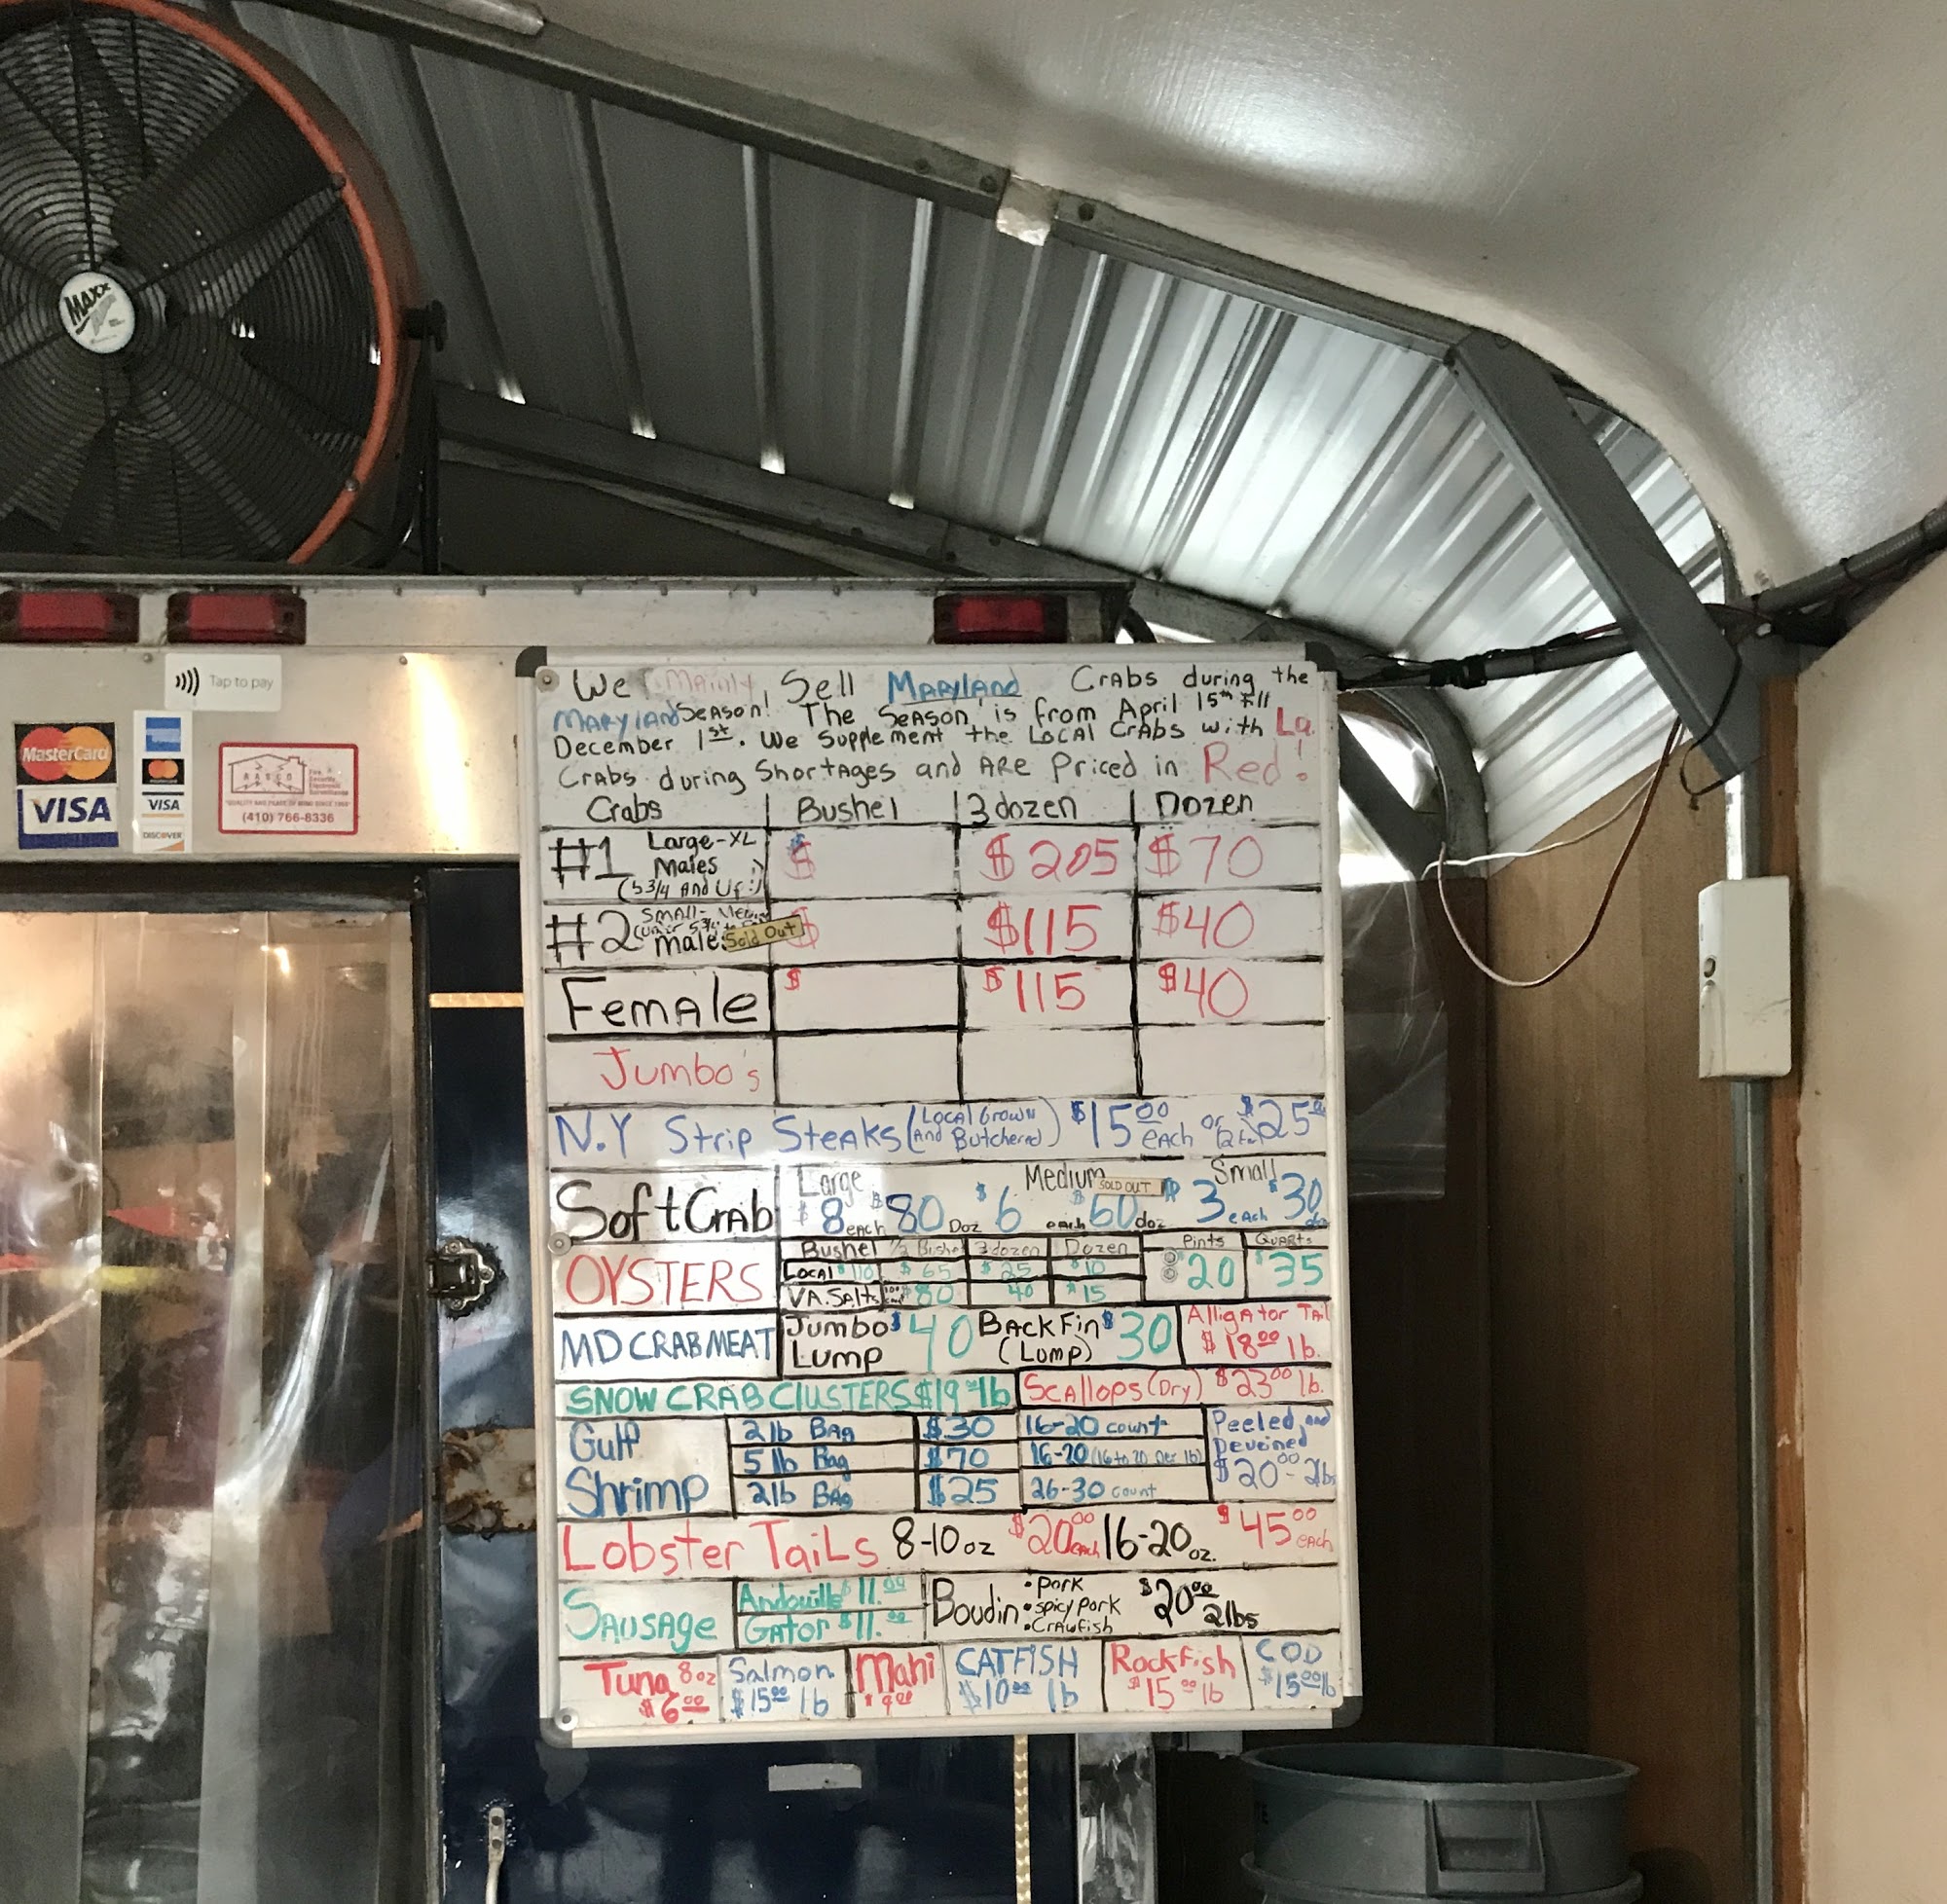 MAXX
Tap to pay
MasterCard
VISA
VISA
DISCOVER
RASCO
Fire
Security
Electronic
Surveillance
"QUALITY AND PEACE OF MIND SINCE 1969"
(410) 766-8336
We Mainly Sell Maryland Crabs during the
Maryland Season! The Season is from April 15th till
December 1st. We Supplement the Local Crabs with La.
Crabs during Shortages and Are Priced in Red!
Crabs Bushel 3 dozen Dozen
#1 Large-XL Males (5 3/4 And Up) $ $205 $70
#2 Small- Males Sold Out $ $115 $40
Female $ $115 $40
Jumbo's
N.Y Strip Steaks (Local Grown And Butchered) $15.00 each or $25
Soft Crab Large $8 each $80 Doz Medium SOLD OUT $6 each $60 doz Small $3 each $30
OYSTERS Bushel 1/2 Bushel 3 dozen Dozen Pints Quarts
Local $110 $65 $25 $10 $20 $35
VA. Salts $80 40 $15
MD CRAB MEAT Jumbo Lump $40 Back Fin (Lump) $30 Alligator Tail $18.00 lb.
SNOW CRAB CLUSTERS $19 lb Scallops (Dry) $23.00 lb.
Gulf Shrimp 2lb Bag $30 16-20 count Peeled and Deveined $20.00 - 2lbs
5 lb Bag $70 16-20 (16 to 20 per lb)
2lb Bag $25 26-30 count
Lobster Tails 8-10 oz $20.00 each 16-20 oz. $45.00 each
Sausage Andouille $11.00 Boudin • Pork • Spicy Pork • Crawfish $20.00 2lbs
Gator $11.00
Tuna 8oz $6.00 Salmon $15.00 lb Mahi $9.00 CATFISH $10.00 lb Rockfish $15.00 lb COD $15.00 lb